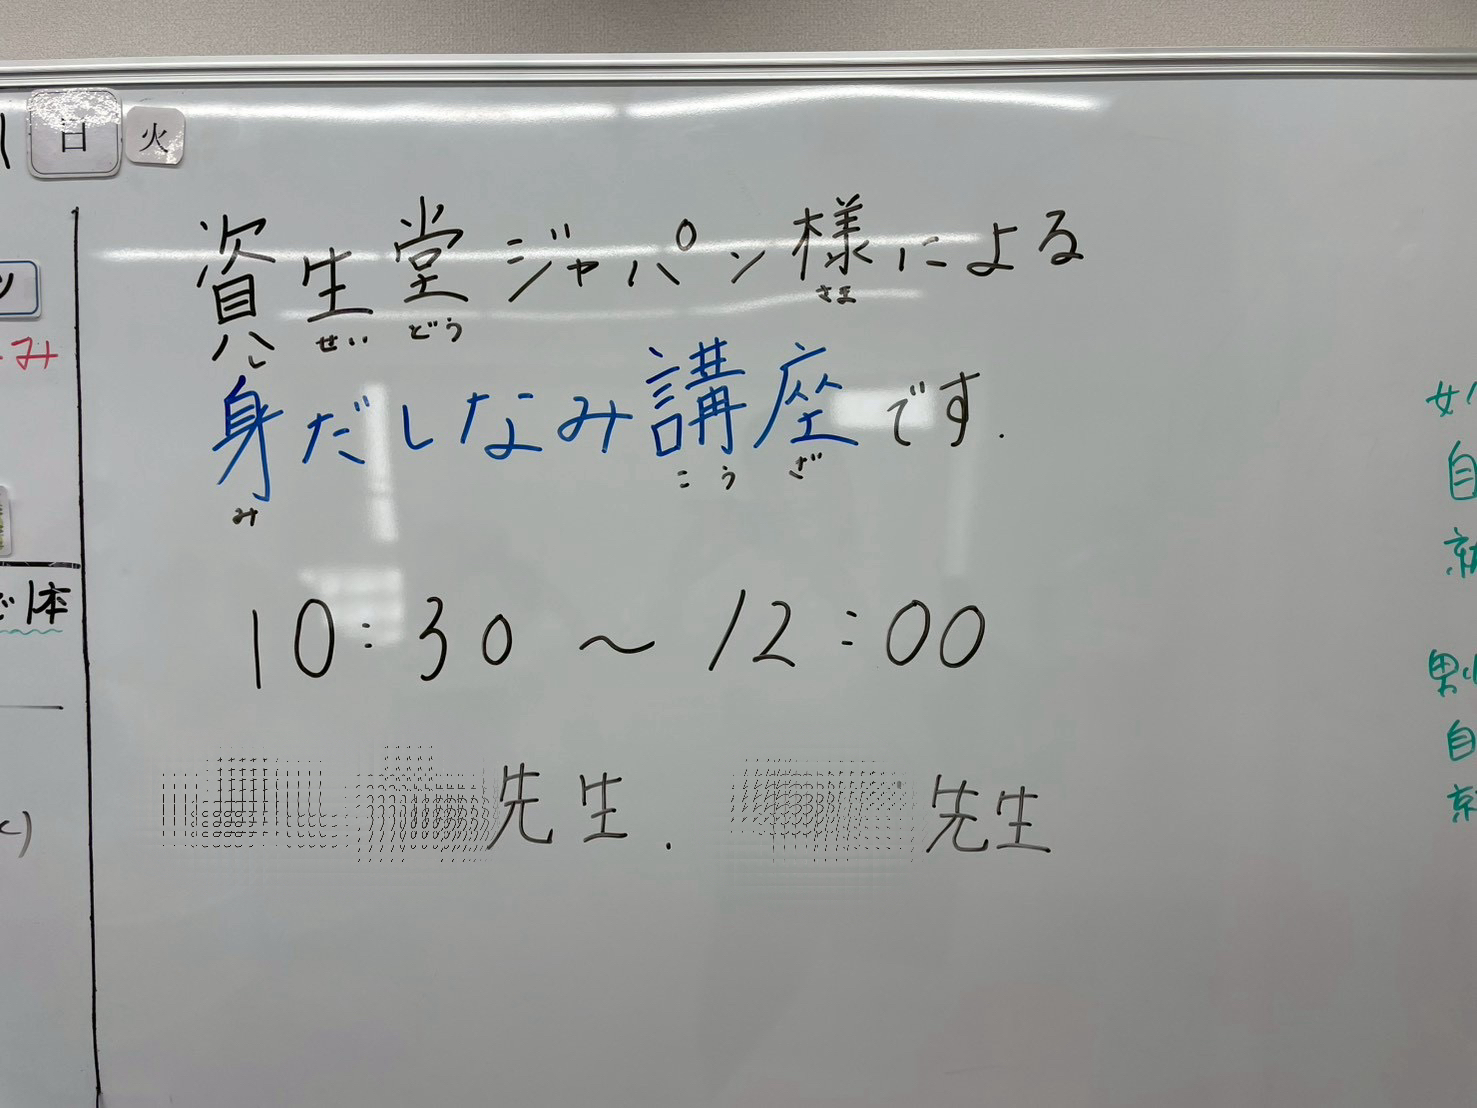 日 火
資生堂ジャパン様による
し せい どう さま
身だしなみ講座です.
み こう ざ
10:30 ～ 12:00
先生. 先生